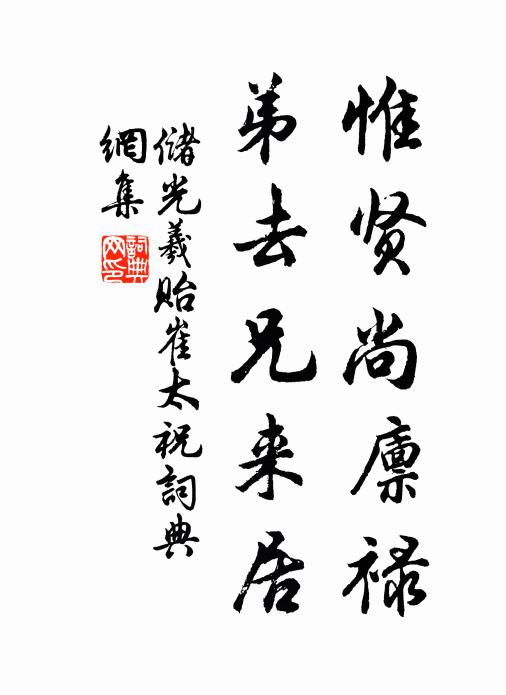 惟贤尚廪禄
弟去兄来居
储光羲贻崔太祝詞典
網集
詞典網印